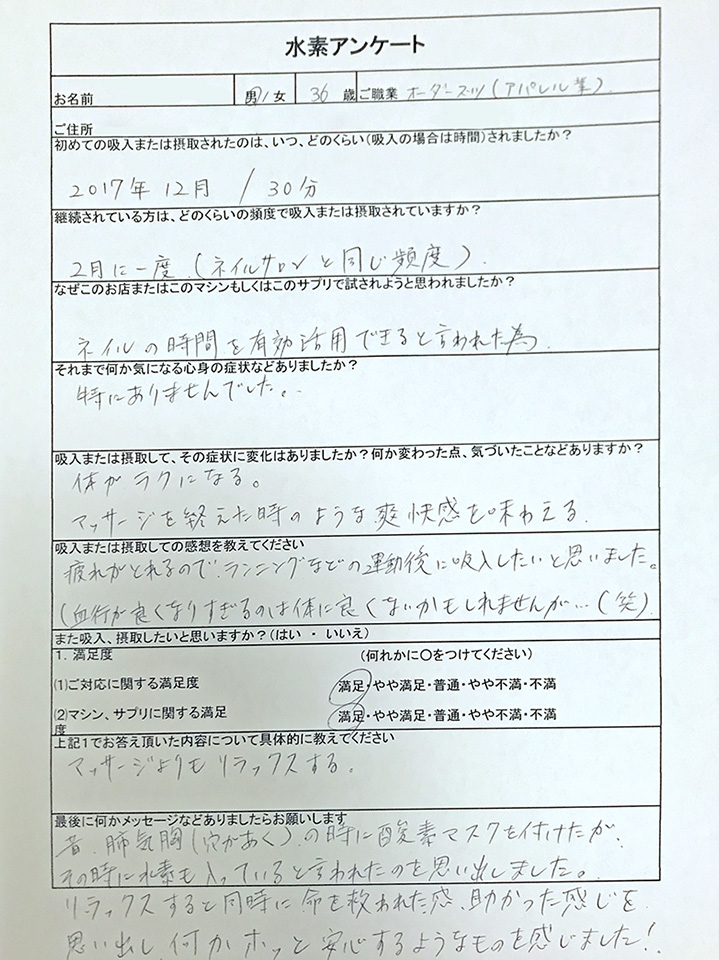 水素アンケート
お名前 男/女 36 歳 ご職業 オーダースーツ(アパレル業)
ご住所
初めての吸入または摂取されたのは、いつ、どのくらい(吸入の場合は時間)されましたか?
2017年12月 / 30分
継続されている方は、どのくらいの頻度で吸入または摂取されていますか?
2月に一度(ネイルサロンと同じ頻度)
なぜこのお店またはこのマシンもしくはこのサプリで試されようと思われましたか?
ネイルの時間を有効活用できると言われた為
それまで何か気になる心身の症状などありましたか?
特にありませんでした。
吸入または摂取して、その症状に変化はありましたか?何か変わった点、気づいたことなどありますか?
体がラクになる。
マッサージを終えた時のような爽快感を味わえる
吸入または摂取しての感想を教えてください
疲れがとれるので、ランニングなどの運動後に吸入したいと思いました。
(血行が良くなりすぎるのは体に良くないかもしれませんが…(笑)
また吸入、摂取したいと思いますか?(はい ・ いいえ)
1. 満足度 (何れかに〇をつけてください)
(1)ご対応に関する満足度 満足・やや満足・普通・やや不満・不満
(2)マシン、サプリに関する満足 満足・やや満足・普通・やや不満・不満
度
上記1でお答え頂いた内容について具体的に教えてください
マッサージよりもリラックスする。
最後に何かメッセージなどありましたらお願いします
昔、肺気胸(穴があく)の時に酸素マスクを付けたが、
その時に水素も入っていると言われたのを思い出しました。
リラックスすると同時に命を救われた感、助かった感じを
思い出し、何かホッと安心するようなものを感じました!